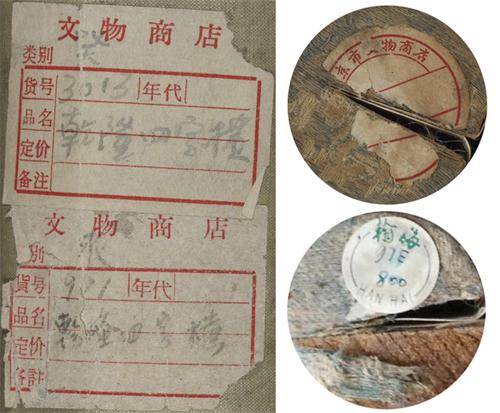 文物商店
类别
货号 3016 年代
品名 乾隆四字横
定价
备注
文物商店
别
货号 901 年代
品名
定价 乾隆四字横
备註
京市文物商店
翰海
17E
800
HAN HAI